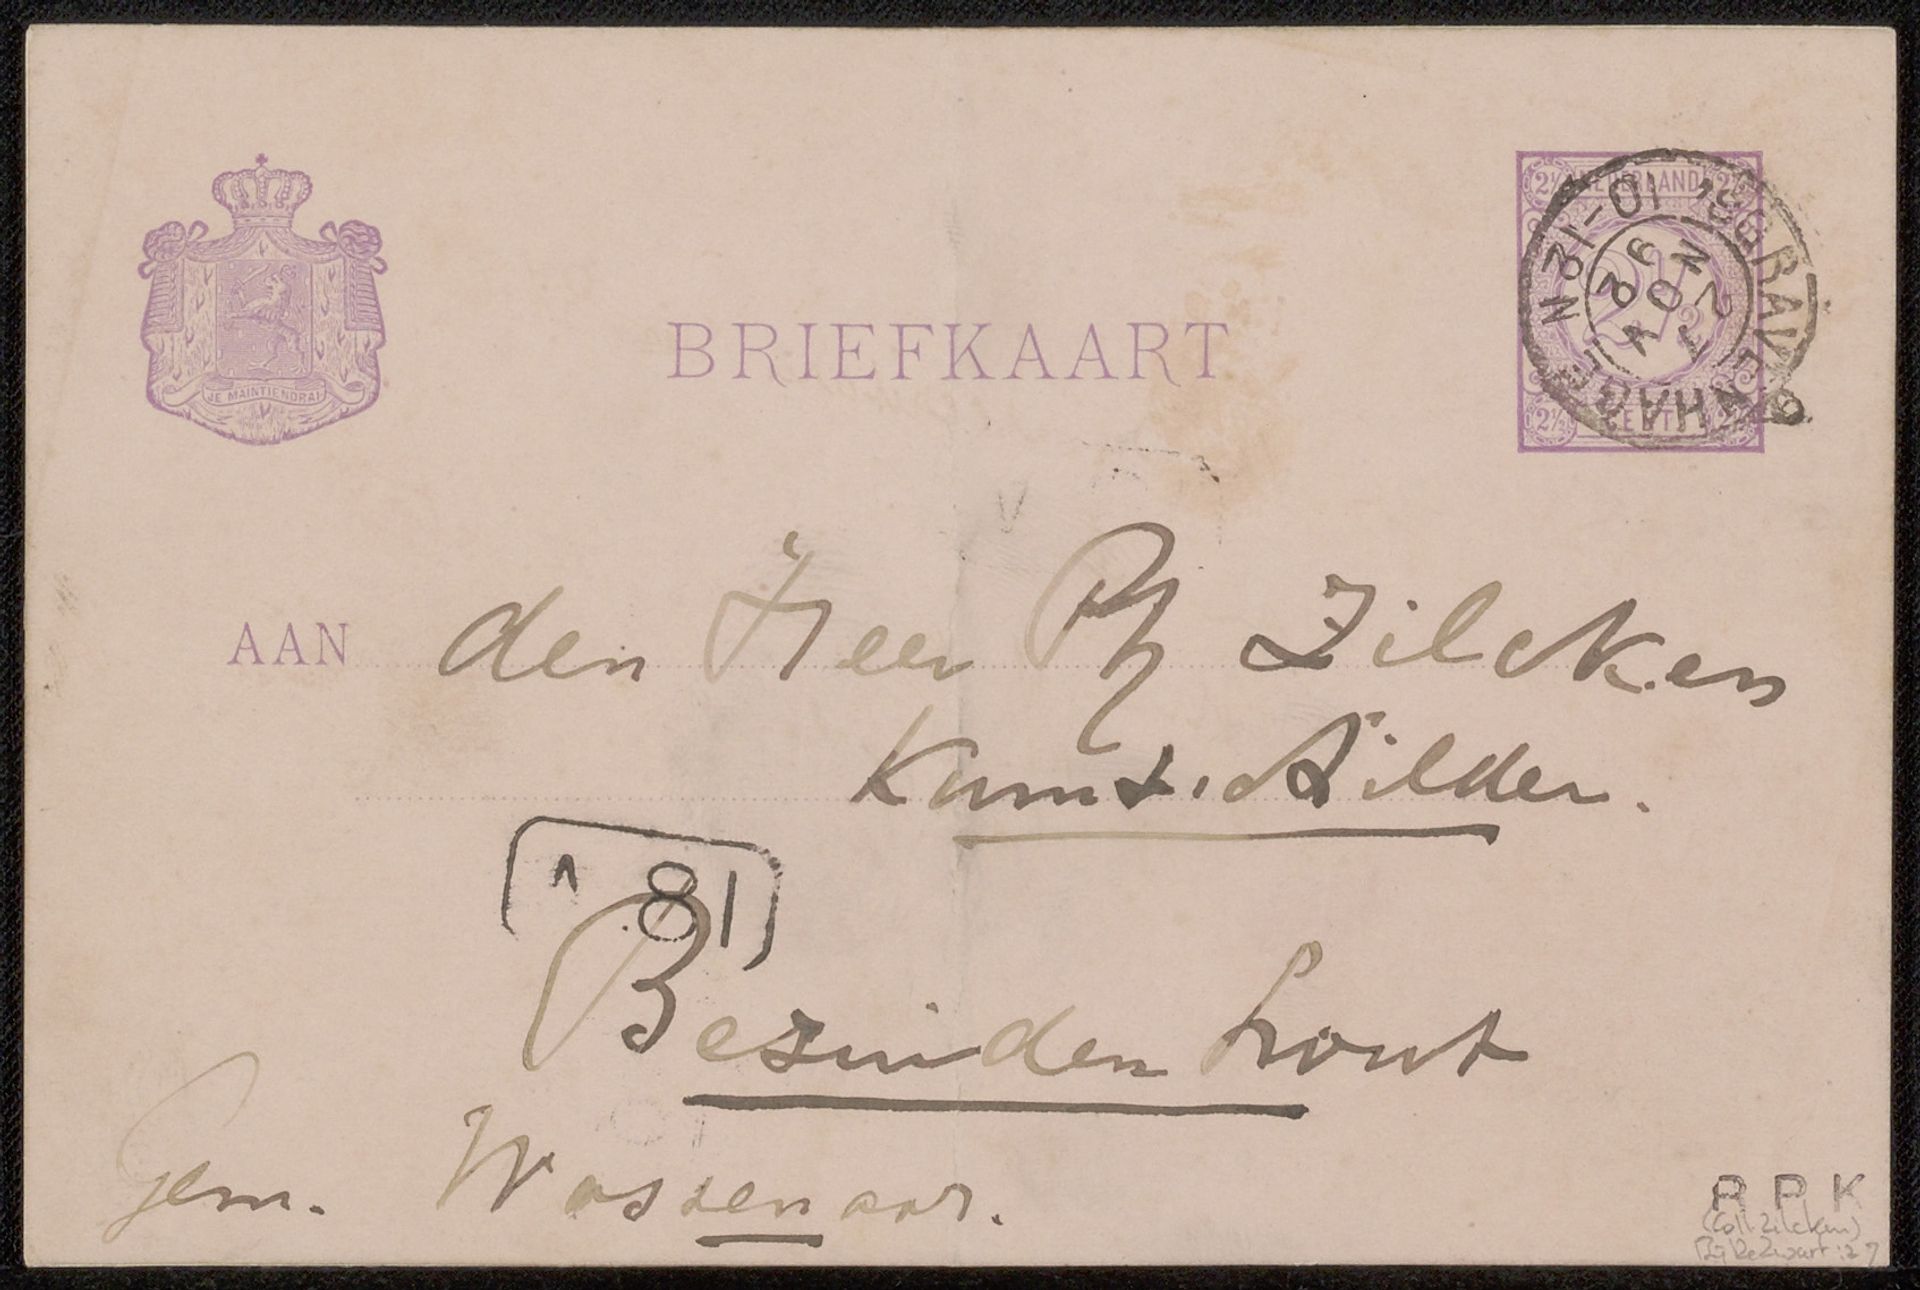 JE MAINTIENDRAI
BRIEFKAART
NEDERLAND
2½
CENT
'S GRAVENHAGE
10-12N
27
NOV
92
AAN den Heer Ph Zilcken
Kunstschilder.
81
Bezuidenhout
gem. Wassenaar.
R P K
(Coll. Zilcken)